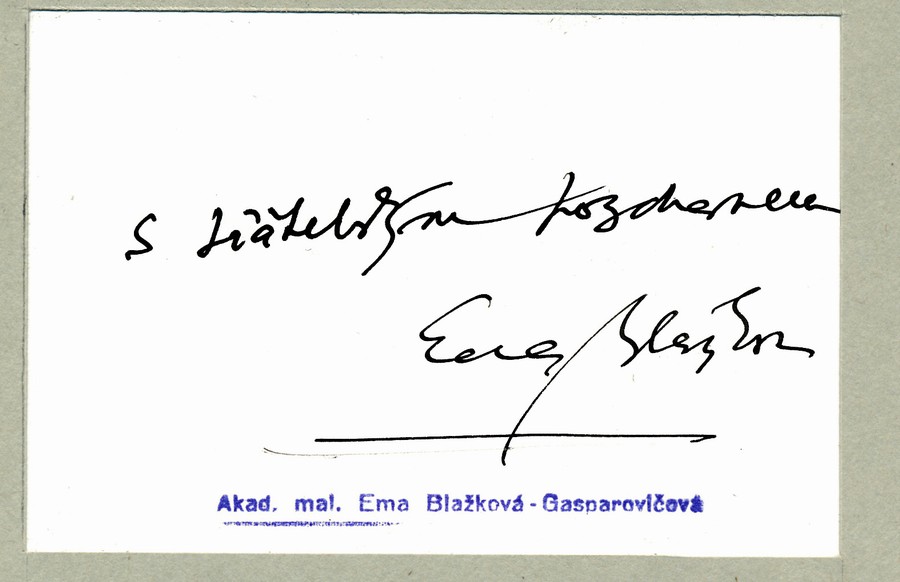 s přátelským pozdravem
Ema Blažková
Akad. mal. Ema Blažková-Gasparovičová